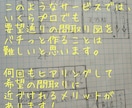 このようなサービスでは
いくらプロでも
要望通りの間取り図を
パチっと作ることは
難しいと思います。
何回もヒアリングして
希望の間取りに